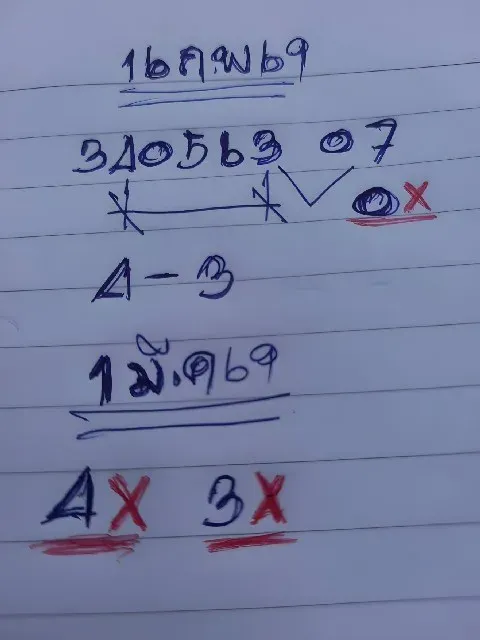 16 ก.พ 69
340563 07
0x
4-3
1 มี.ค 69
4x 3x